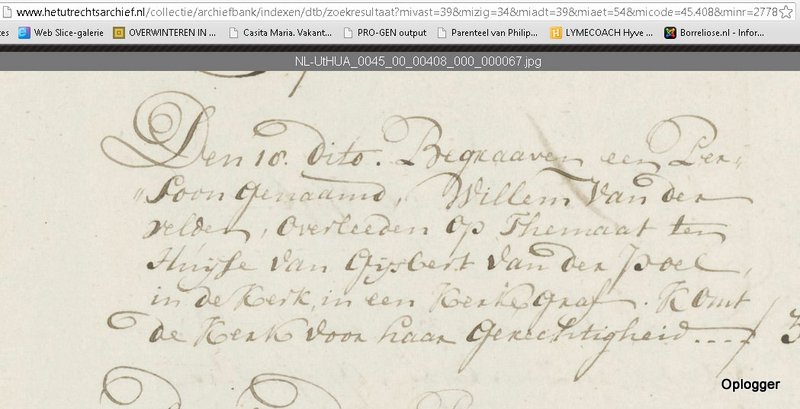 www.hetutrechtsarchief.nl/collectie/archiefbank/indexen/dtb/zoekresultaat?mivast=39&mizig=34&miadt=39&miaet=54&micode=45.408&minr=2778
es Web Slice-galerie OVERWINTEREN IN ... Casita Maria. Vakant... PRO-GEN output Parenteel van Philip... LYMECOACH Hyve ... Borreliose.nl - Infor...
NL-UtHUA_0045_00_00408_000_000067.jpg
Den 18. Dito. Begraaven een Per„
„soon Genaamd, Willem Van der
velden, Overleeden op Themaat ten
Huijse van Gijsbert van der Poel,
in de Kerk, in een Kerke Graf. Komt
de Kerk voor haar Gerechtigheid....ƒ 3
Oplogger